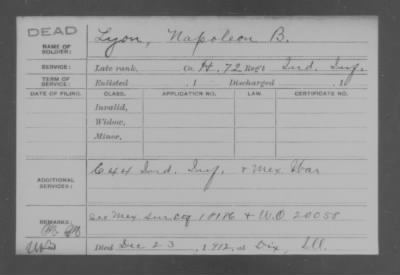 DEAD
NAME OF SOLDIER: Lyon, Napoleon B.
SERVICE: Late rank, Co. H, 72 Reg't Ind. Inf.
TERM OF SERVICE: Enlisted , 1 Discharged , 1
DATE OF FILING. CLASS. APPLICATION NO. LAW. CERTIFICATE NO.
Invalid,
Widow,
Minor,
ADDITIONAL SERVICES: C 44 Ind. Inf. & Mex War
REMARKS: See Mex Sur. 18186 & W.O 20058
Died Dec 23, 1912, at Dix, Ill.